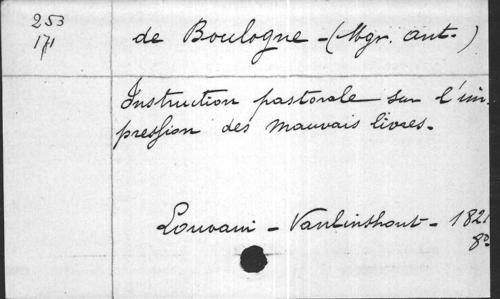 253
171
de Boulogne - (Mgr. ant.)
Instruction pastorale sur l'im-
pression des mauvais livres.
Louvain - Vanlinthout - 1821
8º